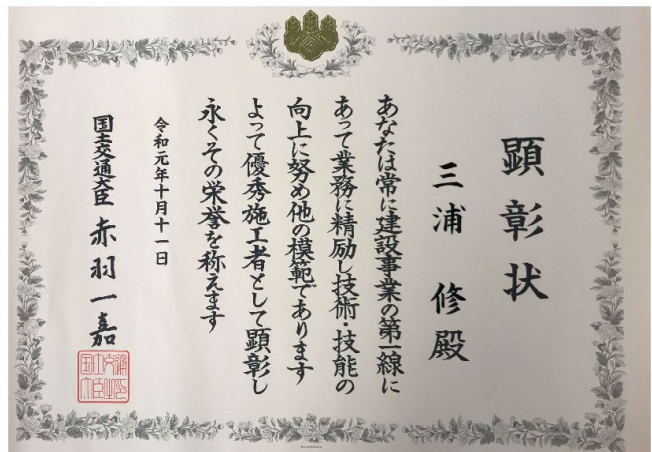 顕彰状
三浦 修 殿
あなたは常に建設事業の第一線に
あって業務に精励し技術・技能の
向上に努め他の模範であります
よって優秀施工者として顕彰し
永くその栄誉を称えます
令和元年十月十一日
国土交通大臣 赤羽一嘉